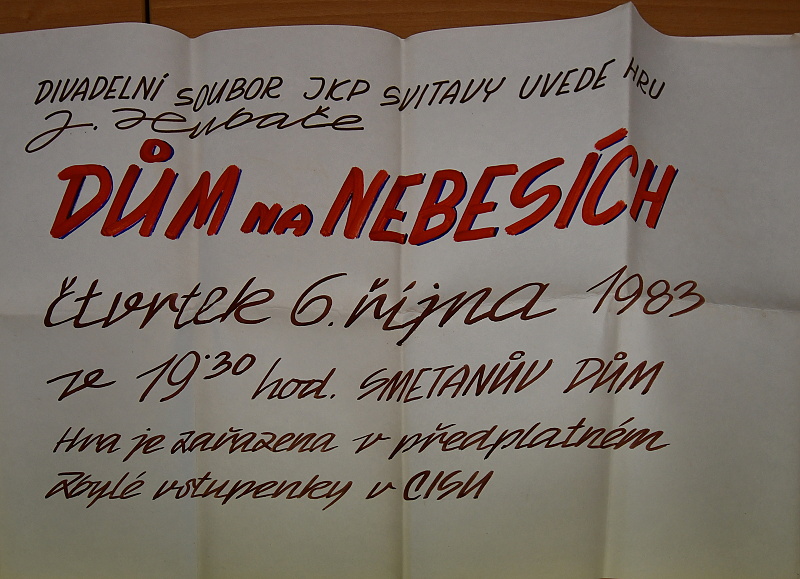 DIVADELNÍ SOUBOR JKP SVITAVY UVEDE HRU
J. Hubače
DŮM NA NEBESÍCH
čtvrtek 6. října 1983
ve 19.30 hod. SMETANŮV DŮM
Hra je zařazena v předplatném
Zbylé vstupenky v CISU